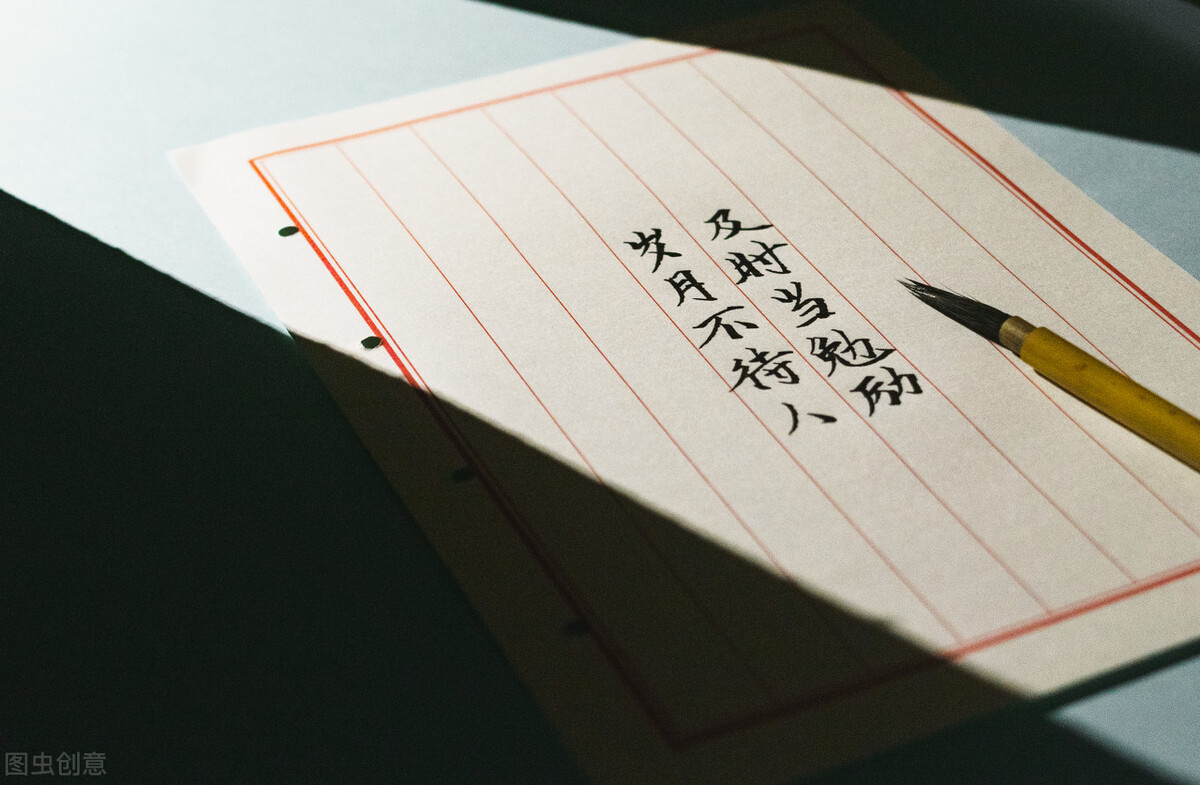 及时当勉励
岁月不待人
图虫创意